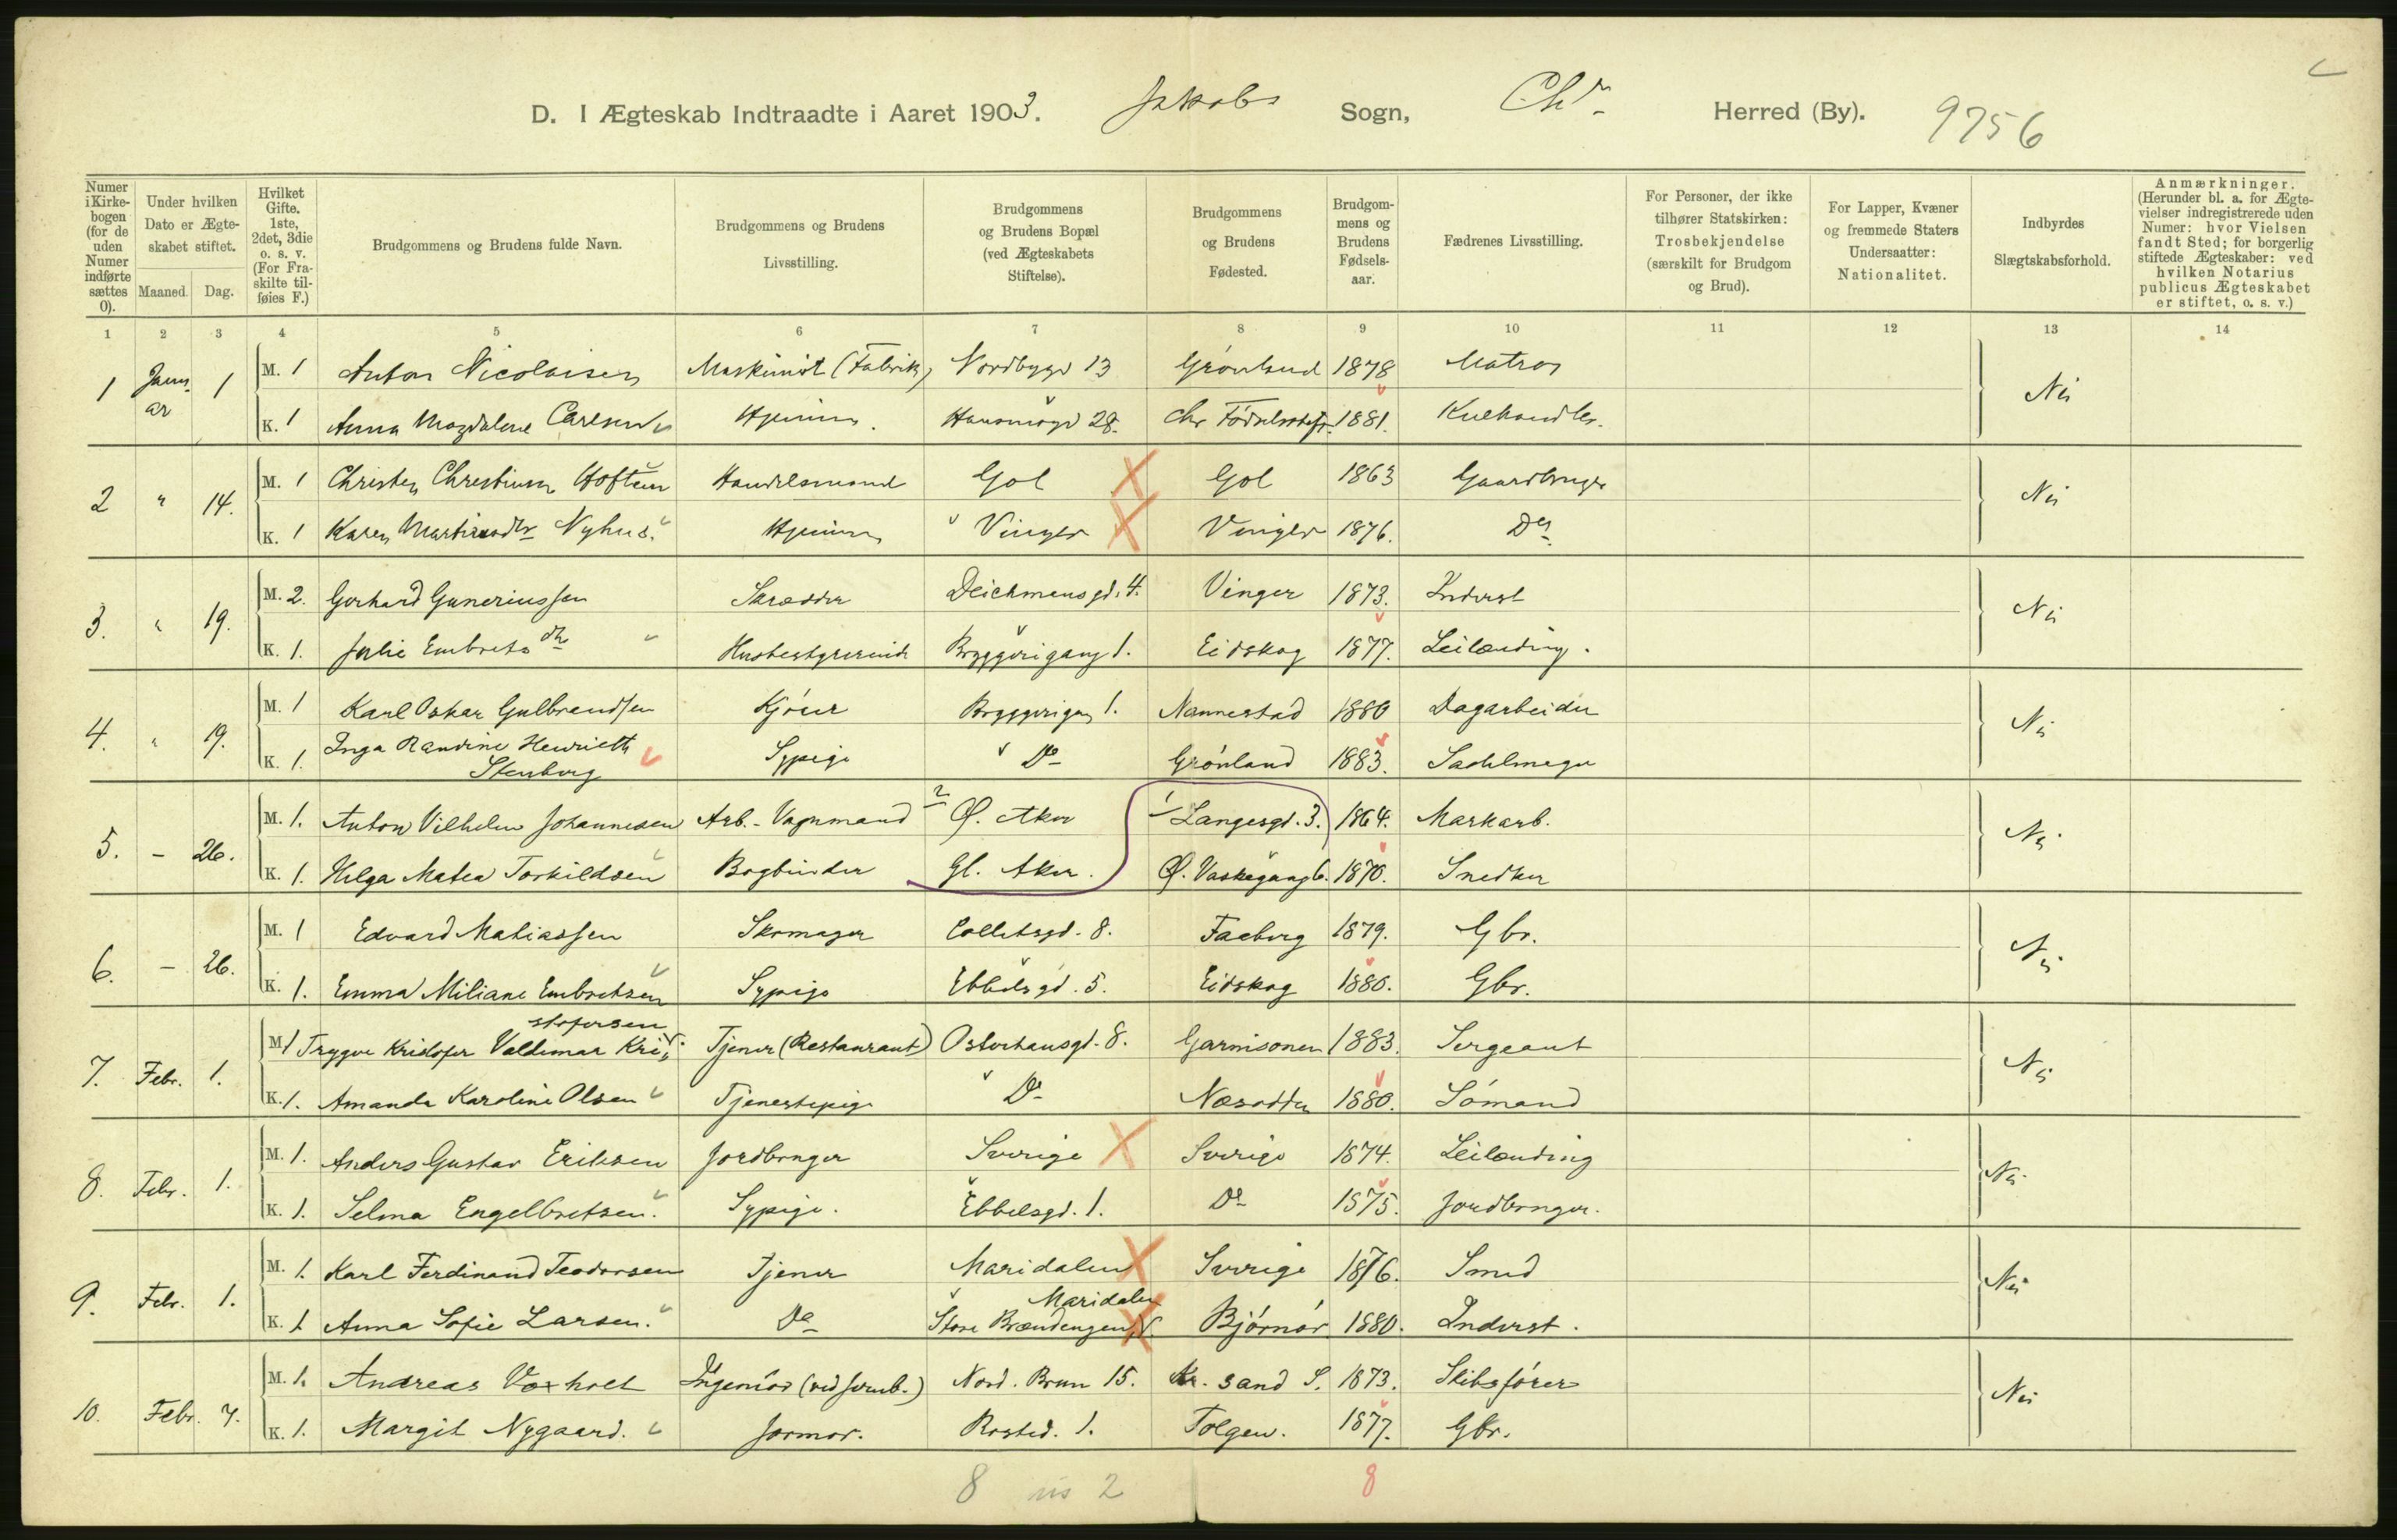 D. I Ægteskab Indtraadte i Aaret 1903. Jakobs Sogn, Chr. Herred (By). 9756
Numer i Kirkebogen (for de uden Numer indførte sættes 0).
Under hvilken Dato er Ægteskabet stiftet.
Maaned. Dag.
Hvilket Gifte. 1ste, 2det, 3die o. s. v. (For Fraskilte tilføies F.)
Brudgommens og Brudens fulde Navn.
Brudgommens og Brudens Livsstilling.
Brudgommens og Brudens Bopæl (ved Ægteskabets Stiftelse).
Brudgommens og Brudens Fødested.
Brudgommens og Brudens Fødselsaar.
Fædrenes Livsstilling.
For Personer, der ikke tilhører Statskirken: Trosbekjendelse (særskilt for Brudgom og Brud).
For Lapper, Kvæner og fremmede Staters Undersaatter: Nationalitet.
Indbyrdes Slægtskabsforhold.
Anmærkninger. (Herunder bl. a. for Ægtevielser indregistrerede uden Numer: hvor Vielsen fandt Sted; for borgerlig stiftede Ægteskaber: ved hvilken Notarius publicus Ægteskabet er stiftet, o. s. v.)
1 2 3 4 5 6 7 8 9 10 11 12 13 14
1 Januar 1 M. 1 Anton Nicolaisen Maskinist (Fabrik) Nordbygd 13 Grønland 1878 Matros Nei
K. 1 Anna Magdalene Carlsen Hjemme. Hausmsgd 28. Chr Fødselsstift. 1881. Kulhandler.
2 " 14. M. 1 Christen Christiansen Hoftun Handelsmand Gol Gol 1863 Gaardbruger Nei
K. 1 Karen Martinsdtr Nyhus. Hjemme Vinger Vinger 1876. Do
3. " 19. M. 2. Gerhard Gunerius sen Skrædder Deichmansgd. 4. Vinger 1873. Inderst Nei
K. 1. Julie Embretsdtr Husbestyrerinde Bryggerigang 1. Eidskog 1877. Leilænding.
4. " 19. M. 1 Karl Oskar Gulbrandsen Kjører Bryggerigang 1. Nannestad 1880 Dagarbeider Nei
K. 1. Inga Randine Henriette Stenberg Sypige Do Grønland 1883. Sadelmager
5. - 26. M. 1. Anton Vilhelm Johannesen Arb. - Vognmand 2 Ø. Aker 1 Langesgd. 3. 1864. Markarb. Nei
K. 1. Helga Matea Torkildsen Bogbinder Gl. Aker. Ø. Vaskegang 6. 1870. Snedker
6. - 26. M. 1 Edvard Matiassen Skomager Colletsgd. 8. Faaberg 1879. Gbr. Nei
K. 1. Emma Miliane Embretsen Sypige Ebbelsgd. 5. Eidskog 1880. Gbr.
7. Febr. 1. M. 1 Trygve Kristofer Valdemar Kristofersen Tjener (Restaurant) Osterhausgd. 8. Garnisonen 1883. Sergeant Nei
K. 1. Amanda Karoline Olsen Tjenestepige Do Næsodden 1880. Sømand
8. Febr. 1. M. 1. Anders Gustav Eriksen Jordbruger Sverige Sverige 1874. Leilænding Nei
K. 1. Selma Engelbretsen. Sypige. Ebbelsgd. 1. Do 1875. Jordbruger.
9. Febr. 1. M. 1. Karl Ferdinand Teodorsen Tjener Maridalen Sverige 1876. Smed Nei
K. 1 Anna Sofie Larsen. Do Store Brændengen, Maridalen Bjørnør 1880. Inderst.
10. Febr. 7. M. 1. Andreas Voxholt Ingeniør (ved Jernb.) Nord. Brun 15. Kr. sand S. 1873. Skibsfører Nei
K. 1. Margit Nygaard. Jormor. Rosted. 1. Tolgen. 1877. Gbr.
8 2 8